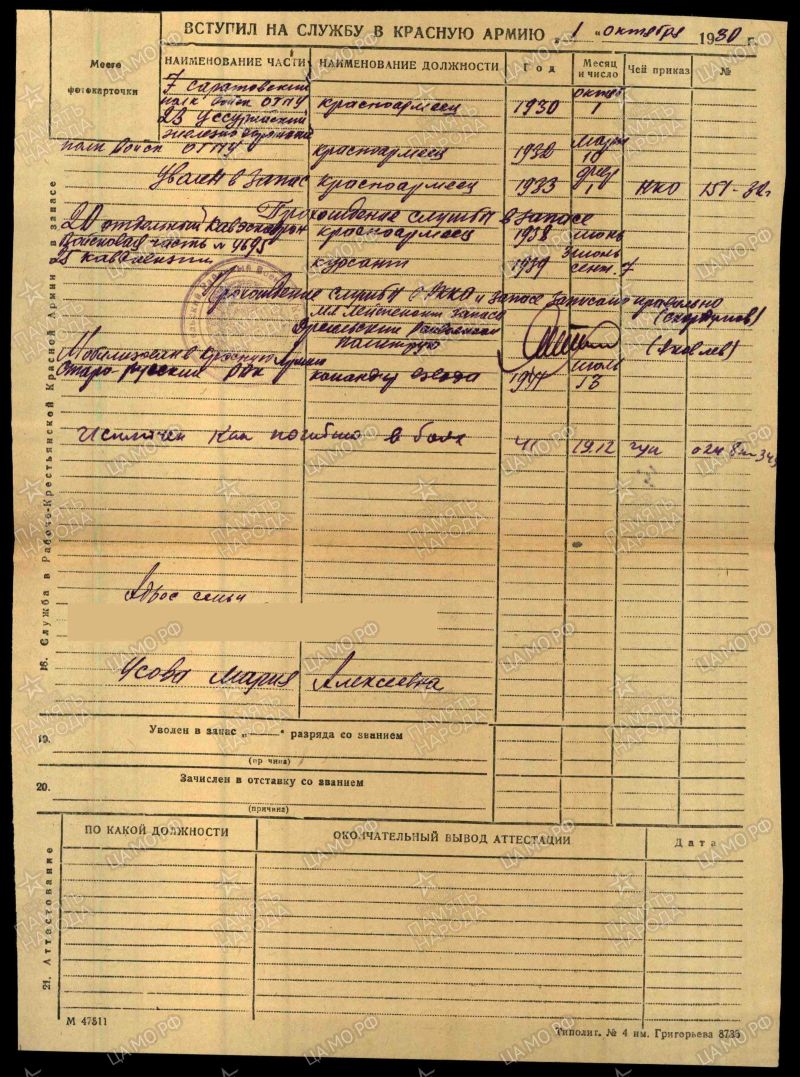 ВСТУПИЛ НА СЛУЖБУ В КРАСНУЮ АРМИЮ „ 1 " октября 1930 г.
Место фотокарточки
НАИМЕНОВАНИЕ ЧАСТИ НАИМЕНОВАНИЕ ДОЛЖНОСТИ Год Месяц и число Чей приказ №
7 Саратовский
полк войск ОГПУ красноармеец 1930 октяб 1
23 Уссурийский
железнодорожный
полк войск ОГПУ красноармеец 1932 март 10
Уволен в запас красноармеец 1933 1 НКО 151-32г
Прохождение службы в запасе
20 отдельный Кавэскадрон красноармеец 1938 июнь
Войсковая часть №
25 кавдивизии курсант 1939 сент. 7
Прохождение службы в РККА и запасе записано правильно
мл лейтенант запаса
политрук (Яковлев)
Мобилизован в Красную Армию
Старо-русский РВК командир взвода 1941 июль 13
Исключен как погибший в боях 41 19.12 гуп
Адрес семьи
Усова Мария Алексеевна
18. Служба в Рабоче-Крестьянской Красной Армии и в запасе
19. Уволен в запас „ " разряда со званием
20. Зачислен в отставку со званием
(причина)
21. Аттестование
ПО КАКОЙ ДОЛЖНОСТИ ОКОНЧАТЕЛЬНЫЙ ВЫВОД АТТЕСТАЦИИ Дата
М 47511
Типолит. № 4 им. Григорьева 8735
ПАМЯТЬ НАРОДА
ЦАМО.РФ